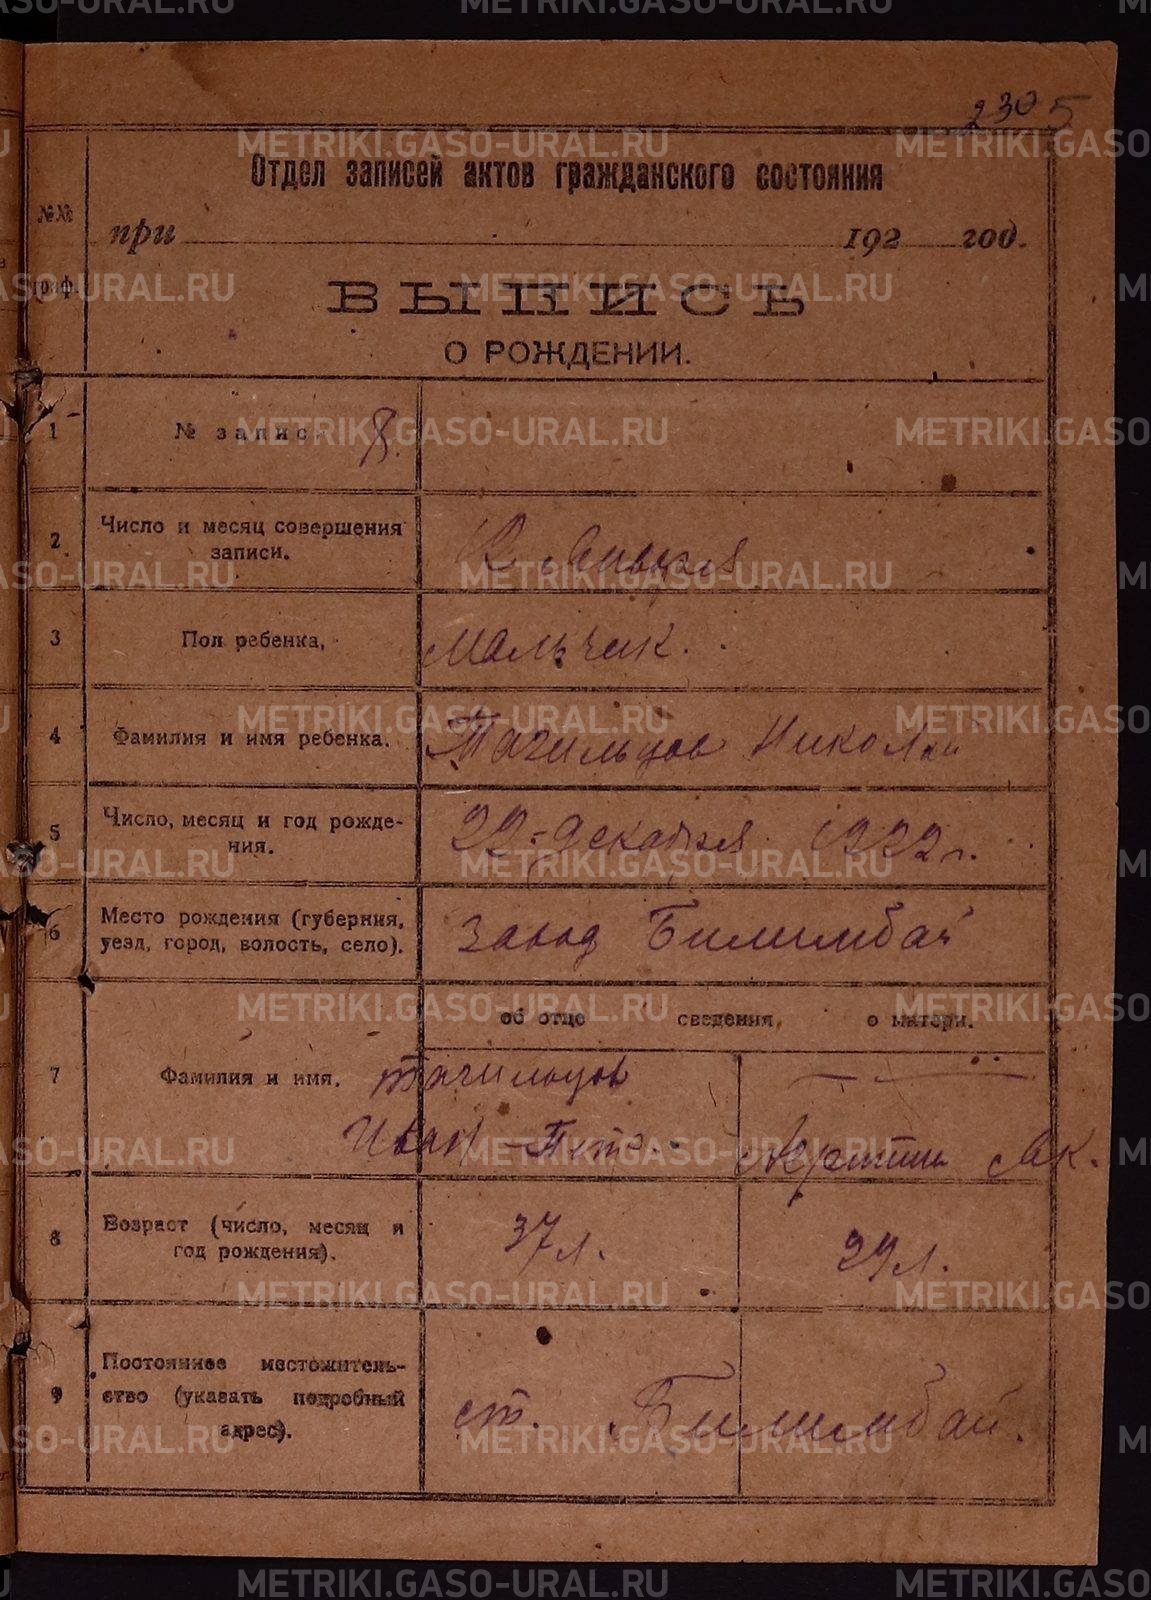 230 5
Отдел записей актов гражданского состояния
№№ граф.
при 192 год.
ВЫПИСЬ
О РОЖДЕНИИ.
1 № записи 8.
2 Число и месяц совершения
записи.
12 Января
3 Пол ребенка, Мальчик.
4 Фамилия и имя ребенка. Тагильцов Николай
5 Число, месяц и год рожде-
ния.
22 Декабря 1922 г.
6 Место рождения (губерния,
уезд, город, волость, село).
завод Билимбай
об отце сведения, о матери.
7 Фамилия и имя. Тагильцов
Иван Петр. Ак.
8 Возраст (число, месяц и
год рождения).
37 л. 29 л.
9 Постоянное местожитель-
ство (указать подробный
адрес).
ст. Билимбай.
METRIKI.GASO-URAL.RU